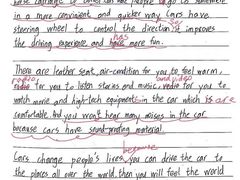 in a more convenient and quicker way. Cars have
steering wheel to control the direction, it improves
has
the driving experience and have more fun.
There are leather seat, air-condition for you to feel warm,
radio, and video
radio for you to listen stories and music, radio for you to
watch movie and high-tech equipments in the car which is are
comfortable. And you won't hear many noises in the car
because cars have sound-proofing material.
become
Cars change people's lives, you can drive the car to
the places all over the world, then you will feel the world